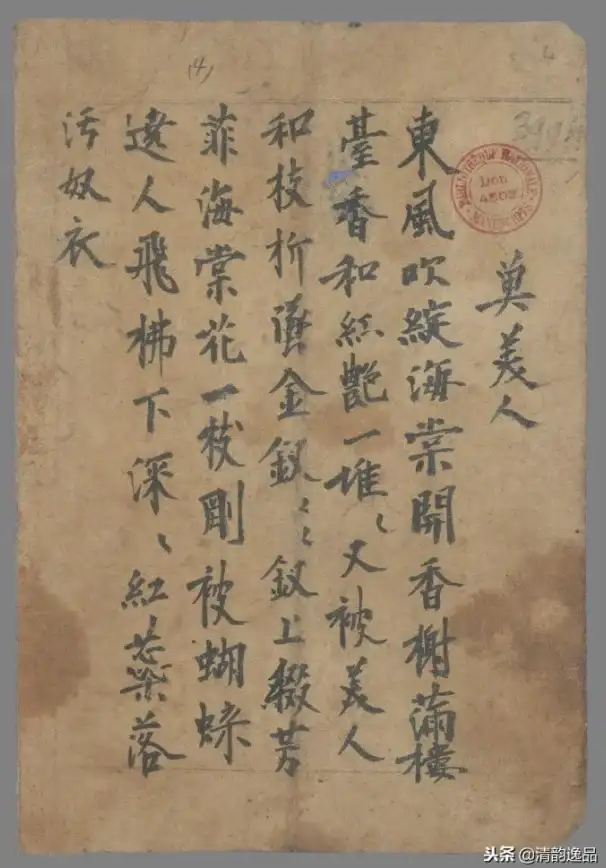 (4)
4
3994
BIBLIOTHÈQUE NATIONALE
DON
4502
MANUSCRITS
虞美人
東風吹綻海棠開香榭滿樓
臺香和紅艷一堆〻又被美人
和枝折墜金釵〻〻釵上綴芳
菲海棠花一枝剛被蝴蝶
遶人飛拂下深〻紅蕊落
污奴衣
头条 @清韵逸品